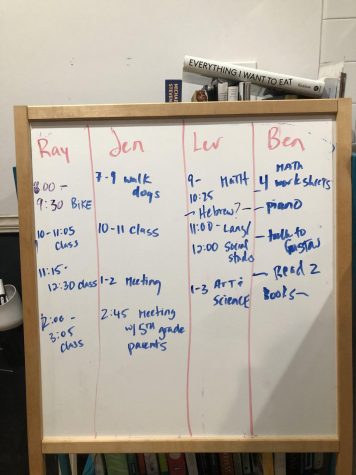 EVERYTHING I WANT TO EAT
Ray
8:00 -
9:30 BIKE
10-11:05
class
11:15-
12:30 class
2:00 -
3:05
class
Jen
7-9 walk
dogs
10-11 class
1-2 Meeting
2:45 Meeting
w/ 5th grade
parents
Lev
9- MATH
10:25
- Hebrew?
11:00 - Lang/
12:00 Social
Studs
1-3 Art &
Science
Ben
MATH
4 worksheets
- piano
- talk to
Gustav
- Read 2
Books -